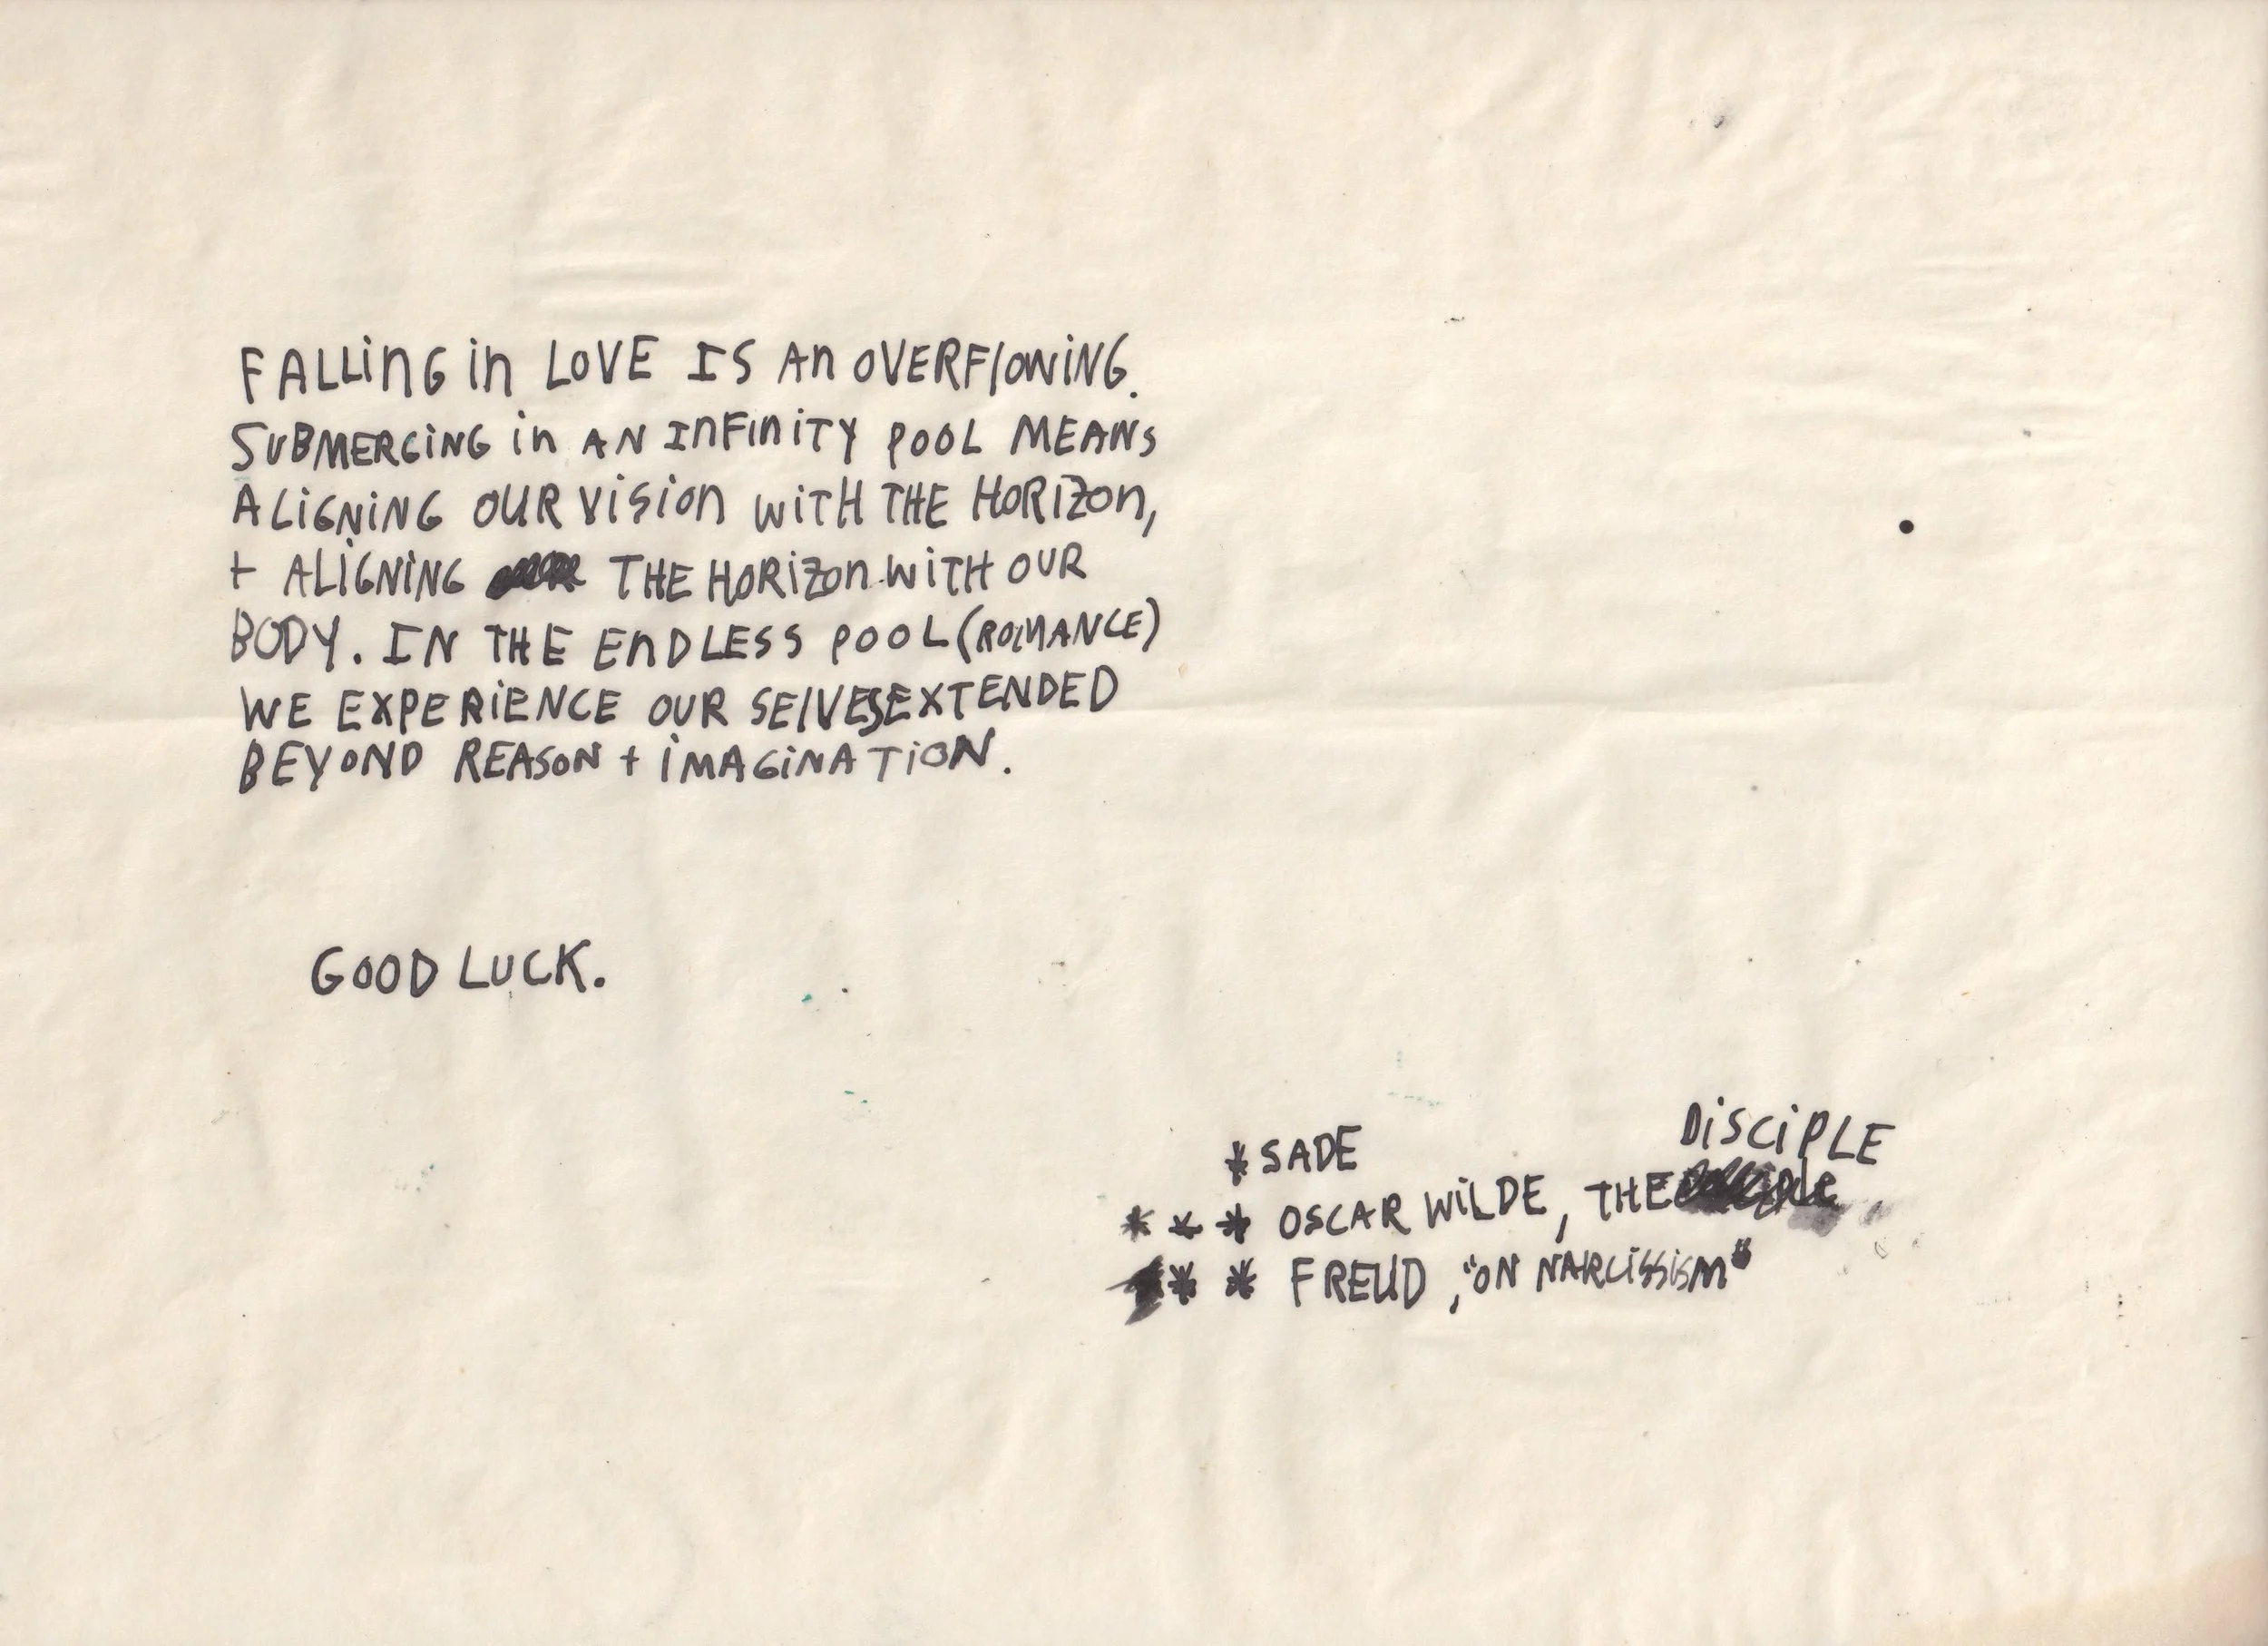 FALLING in LOVE IS AN OVERFLOWING.
SUBMERGING in AN INFINITY POOL MEANS
ALIGNING OUR VISION WITH THE HORIZON,
+ ALIGNING THE HORIZON WITH OUR
BODY. IN THE ENDLESS POOL (ROMANCE)
WE EXPERIENCE OUR SELVES EXTENDED
BEYOND REASON + IMAGINATION.
GOOD LUCK.
* SADE
DISCIPLE
* * * OSCAR WILDE, THE
* * FREUD, "ON NARCISSISM"